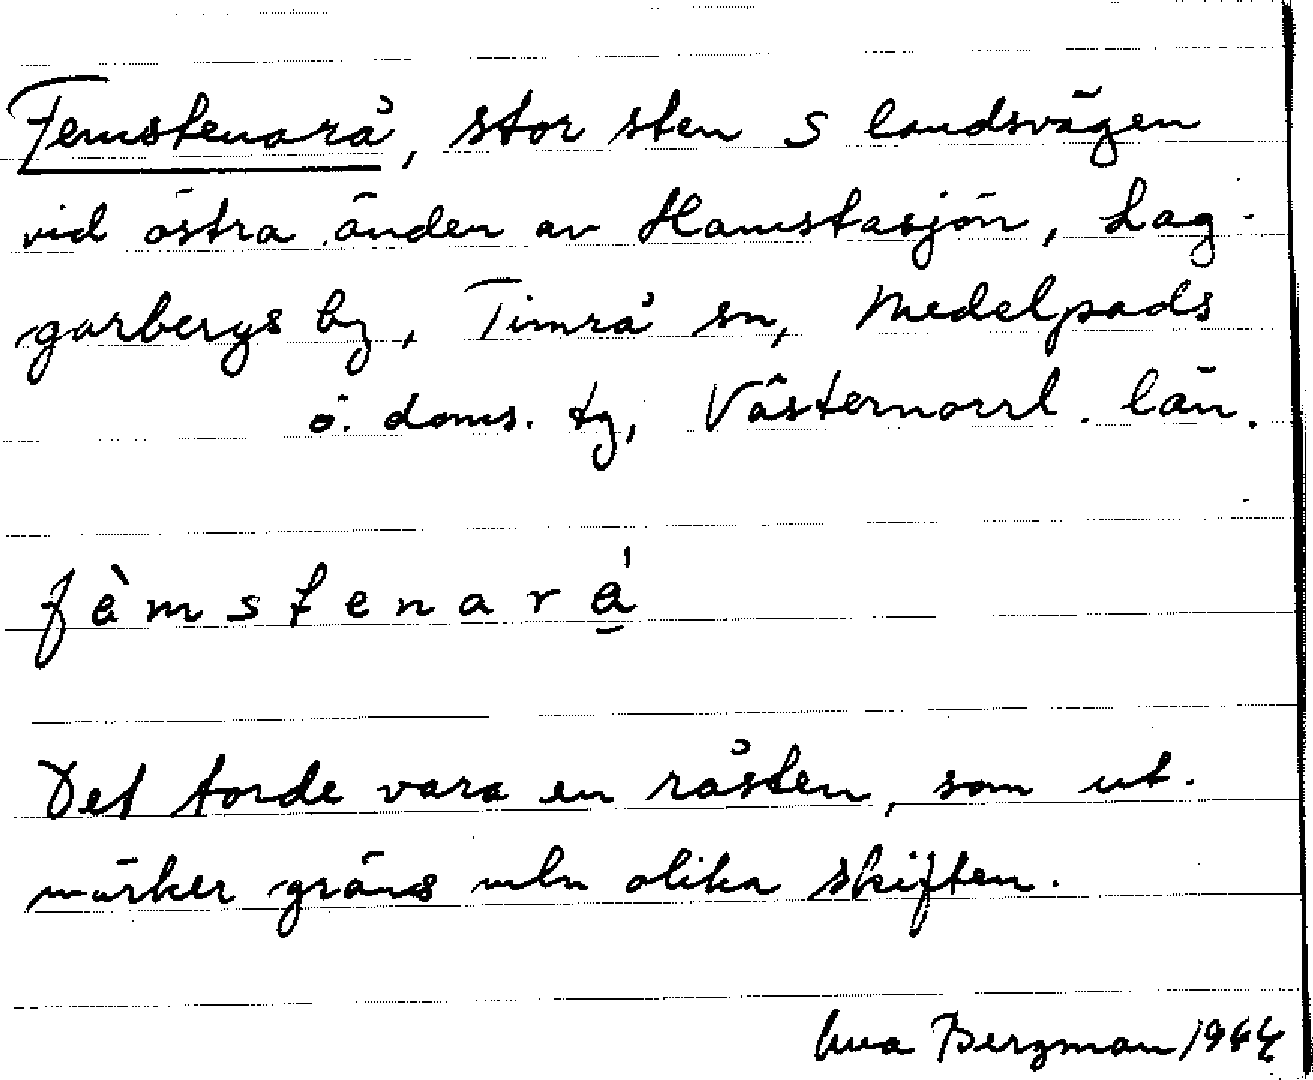 Femstenarå, stor sten S landsvägen
vid östra änden av Hamstasjön, Lag-
garbergs by, Timrå sn, Medelpads
ö. doms. tg, Västernorrl. län.
fèmstenará̱
Det torde vara en råsten, som ut-
märker gräns mln olika skiften.
Bergman 1964